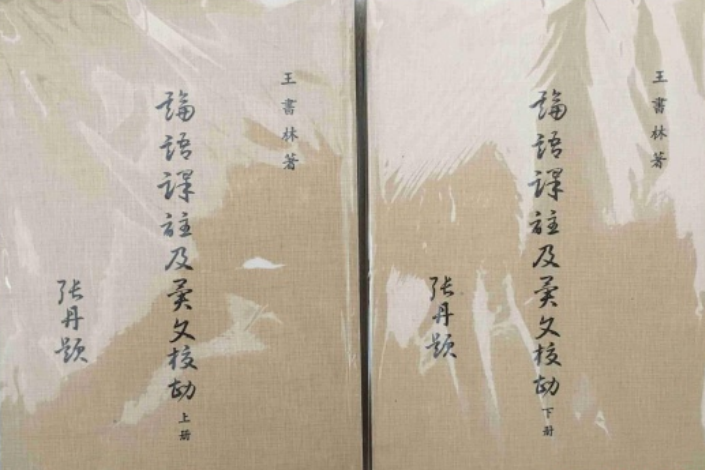 王書林著
論語譯註及異文校勘 上册
张丹题
王書林著
論語譯註及異文校勘 下册
张丹题